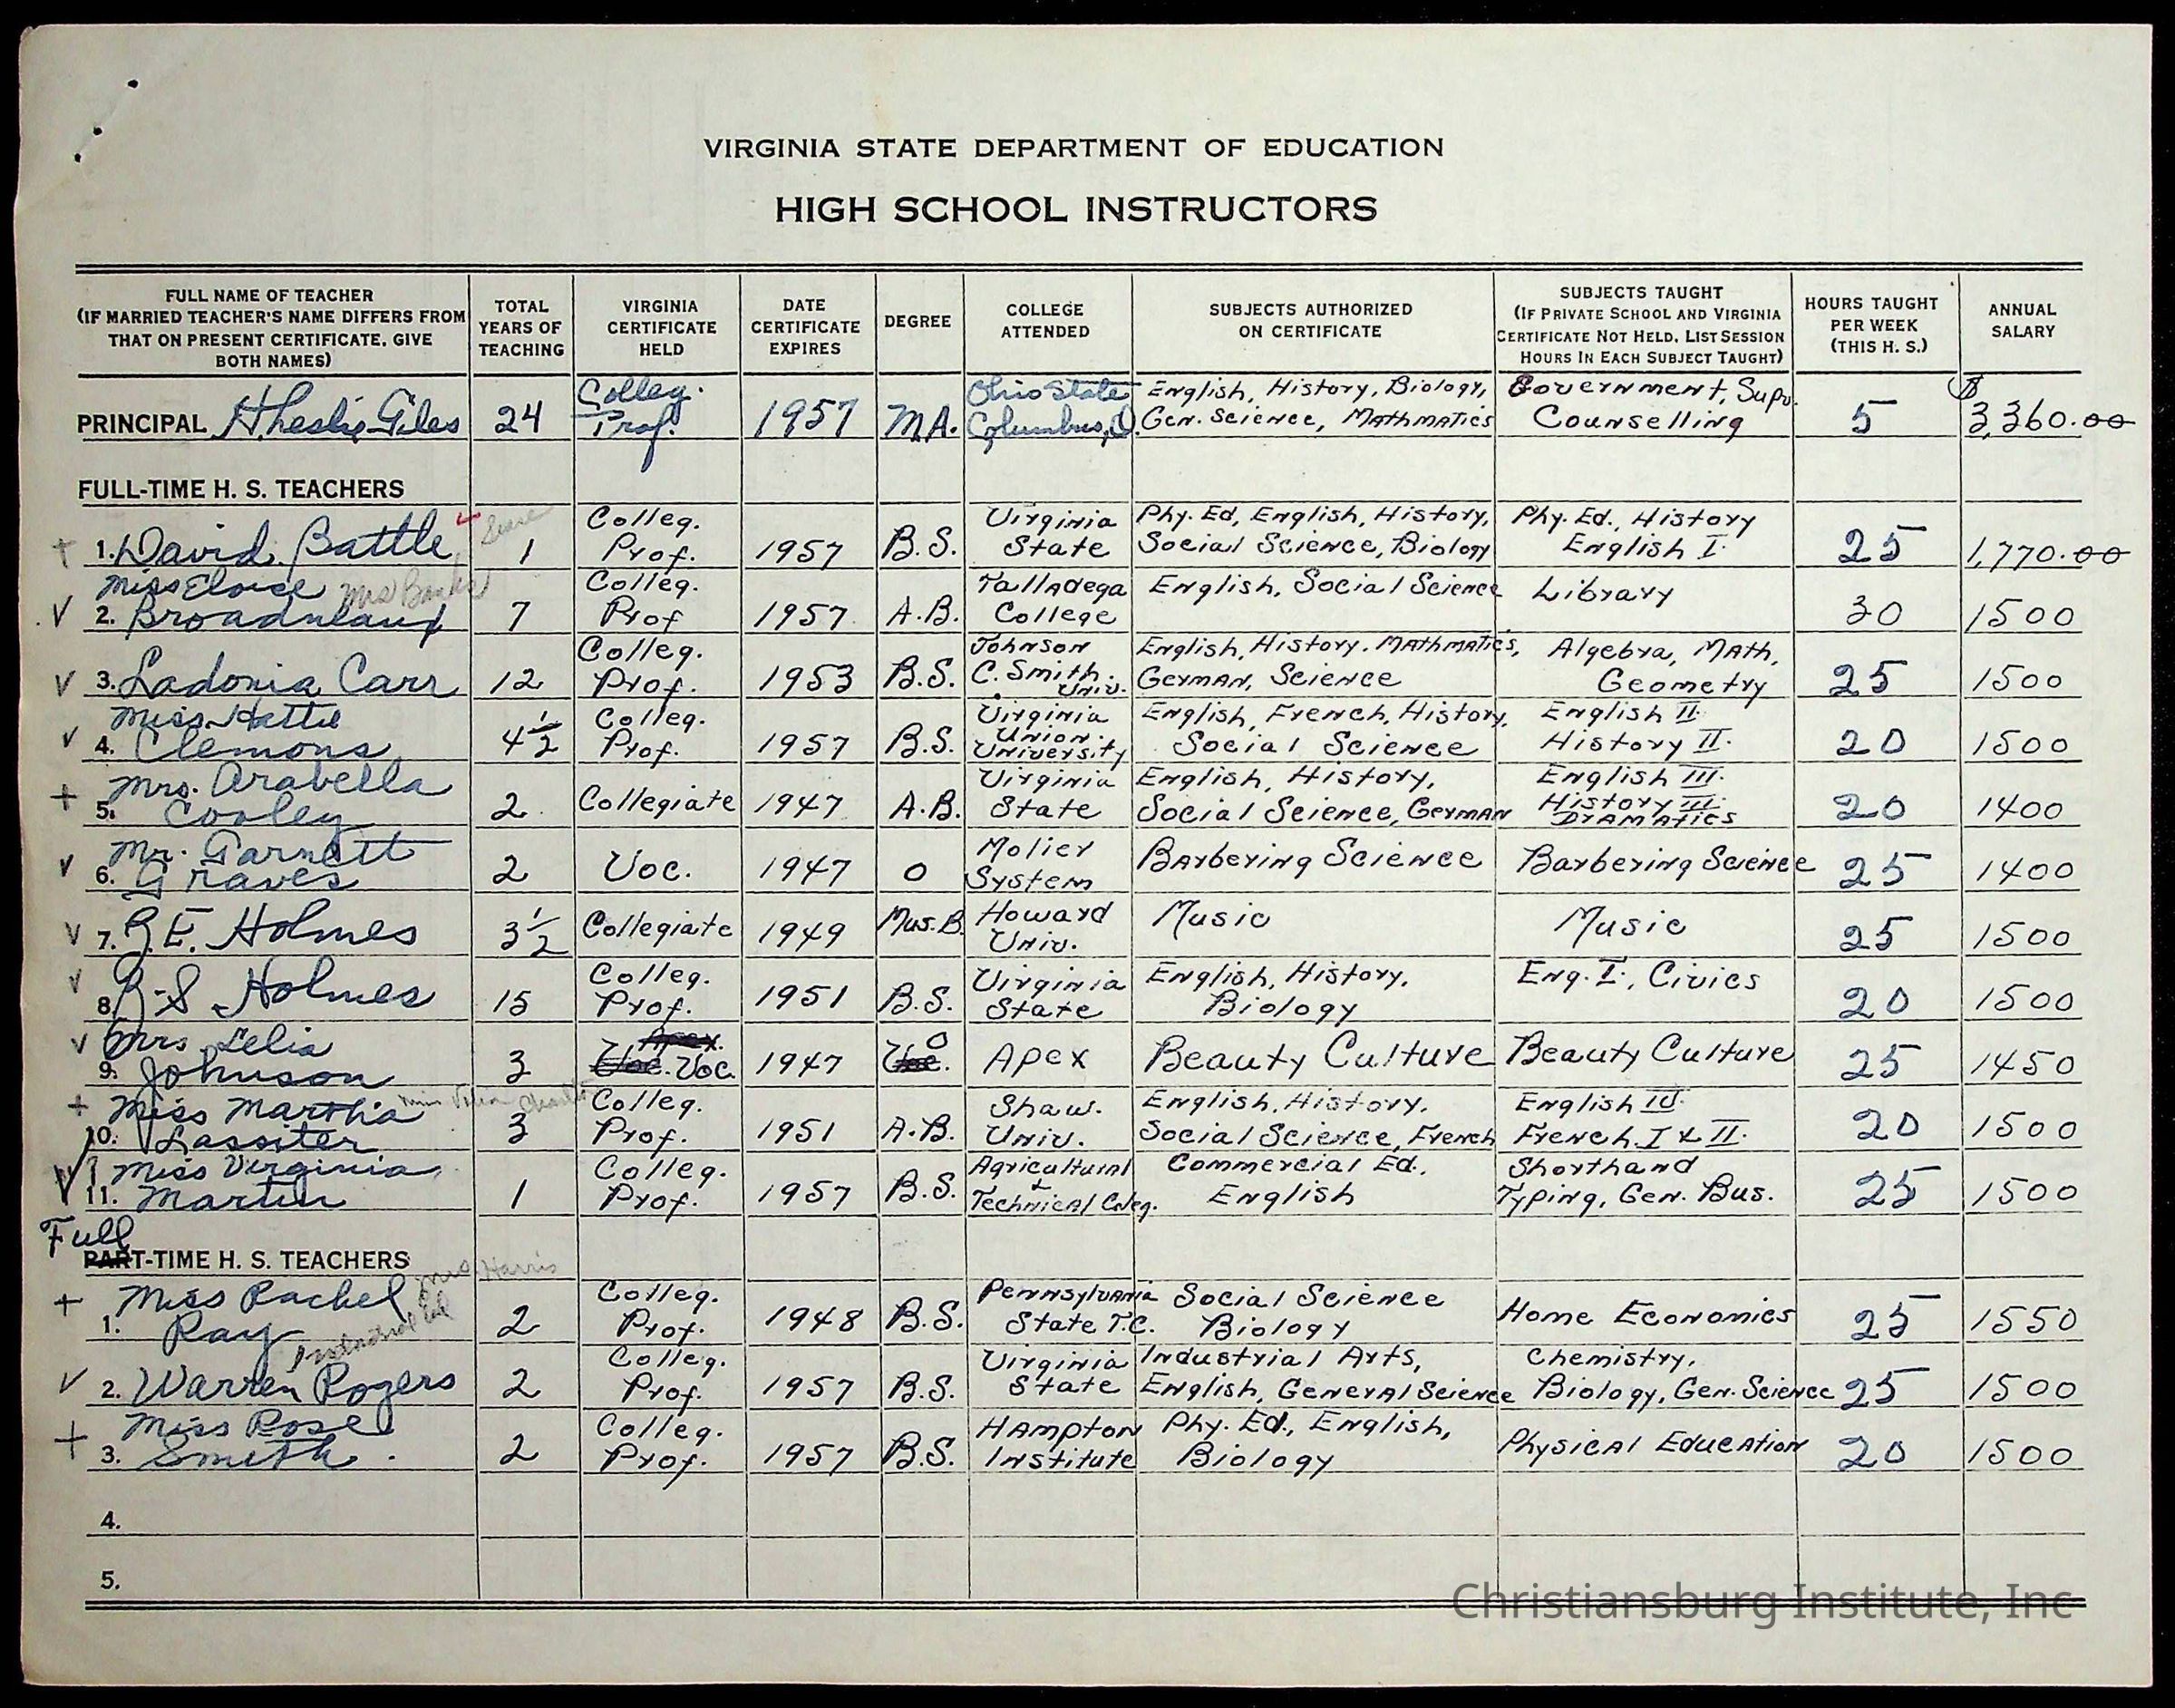 VIRGINIA STATE DEPARTMENT OF EDUCATION
HIGH SCHOOL INSTRUCTORS
FULL NAME OF TEACHER (IF MARRIED TEACHER'S NAME DIFFERS FROM THAT ON PRESENT CERTIFICATE, GIVE BOTH NAMES) TOTAL YEARS OF TEACHING VIRGINIA CERTIFICATE HELD DATE CERTIFICATE EXPIRES DEGREE COLLEGE ATTENDED SUBJECTS AUTHORIZED ON CERTIFICATE SUBJECTS TAUGHT (IF PRIVATE SCHOOL AND VIRGINIA CERTIFICATE NOT HELD, LIST SESSION HOURS IN EACH SUBJECT TAUGHT) HOURS TAUGHT PER WEEK (THIS H. S.) ANNUAL SALARY
PRINCIPAL Giles 24 Colleg. Prof. 1957 M.A. Ohio State Columbus, O. English, History, Biology, Gen. Science, Mathmatics Government, Supv. Counselling 5 $3,360.00
FULL-TIME H. S. TEACHERS
+ 1. David Battle 1 Colleg. Prof. 1957 B.S. Virginia State Phy. Ed, English, History, Social Science, Biology Phy. Ed., History English I. 25 1,770.00
V 2. Miss Eloise 7 Colleg. Prof 1957 A.B. Talladega College English, Social Science Library 30 1500
V 3. Ladonia Carr 12 Colleg. Prof. 1953 B.S. Johnson C. Smith. Univ. English, History. Mathmatic's, German, Science Algebra, Math, Geometry 25 1500
V 4. Miss Hattie Clemons 4 1/2 Colleg. Prof. 1957 B.S. Virginia Union. University English, French, History, Social Science English II. History II. 20 1500
+ 5. Mrs. Arabella Cooley 2 Collegiate 1947 A.B. Virginia State English, History, Social Science, German English III. History III. Dramatics 20 1400
V 6. Mr. Garnett Graves 2 Voc. 1947 0 Molier System Barbering Science Barbering Science 25 1400
V 7. E. Holmes 3 1/2 Collegiate 1949 Mus. B. Howard Univ. Music Music 25 1500
V 8. S Holmes 15 Colleg. Prof. 1951 B.S. Virginia State English, History, Biology Eng. I., Civics 20 1500
V 9. Mrs Lelia Johnson 3 Apex. Voc. Voc. 1947 Voc. 0 Apex Beauty Culture Beauty Culture 25 1450
+ 10. Miss Martha Lassiter 3 Colleg. Prof. 1951 A.B. Shaw. Univ. English, History, Social Science, French English IV. French I & II. 20 1500
V 11. Miss Virginia Martin 1 Colleg. Prof. 1957 B.S. Agricultural + Technical Coleg. Commercial Ed., English Shorthand Typing, Gen. Bus. 25 1500
Full
PART-TIME H. S. TEACHERS
Mrs Harris
+ 1. Miss Rachel Ray 2 Colleg. Prof. 1948 B.S. Pennsylvania State T.C. Social Science Biology Home Economics 25 1550
V 2. Warren Rogers 2 Colleg. Prof. 1957 B.S. Virginia State Industrial Arts, English, General Science Chemistry, Biology, Gen. Science 25 1500
+ 3. Miss Rose Smith. 2 Colleg. Prof. 1957 B.S. Hampton Institute Phy. Ed., English, Biology Physical Education 20 1500
4.
5.
Christiansburg Institute, Inc